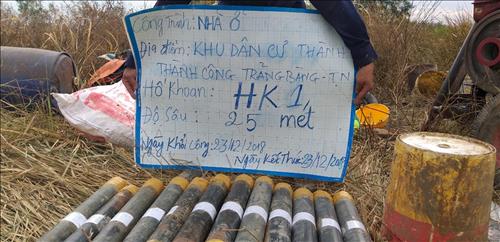 Công Trình: NHÀ Ở
Địa điểm: KHU DÂN CƯ THÀNH
THÀNH CÔNG TRẢNG BÀNG - T.N
Hố Khoan: HK1,
Độ Sâu: 25 mét
Ngày Khởi Công: 23/12/2018
Ngày Kết Thúc 23/12/2018